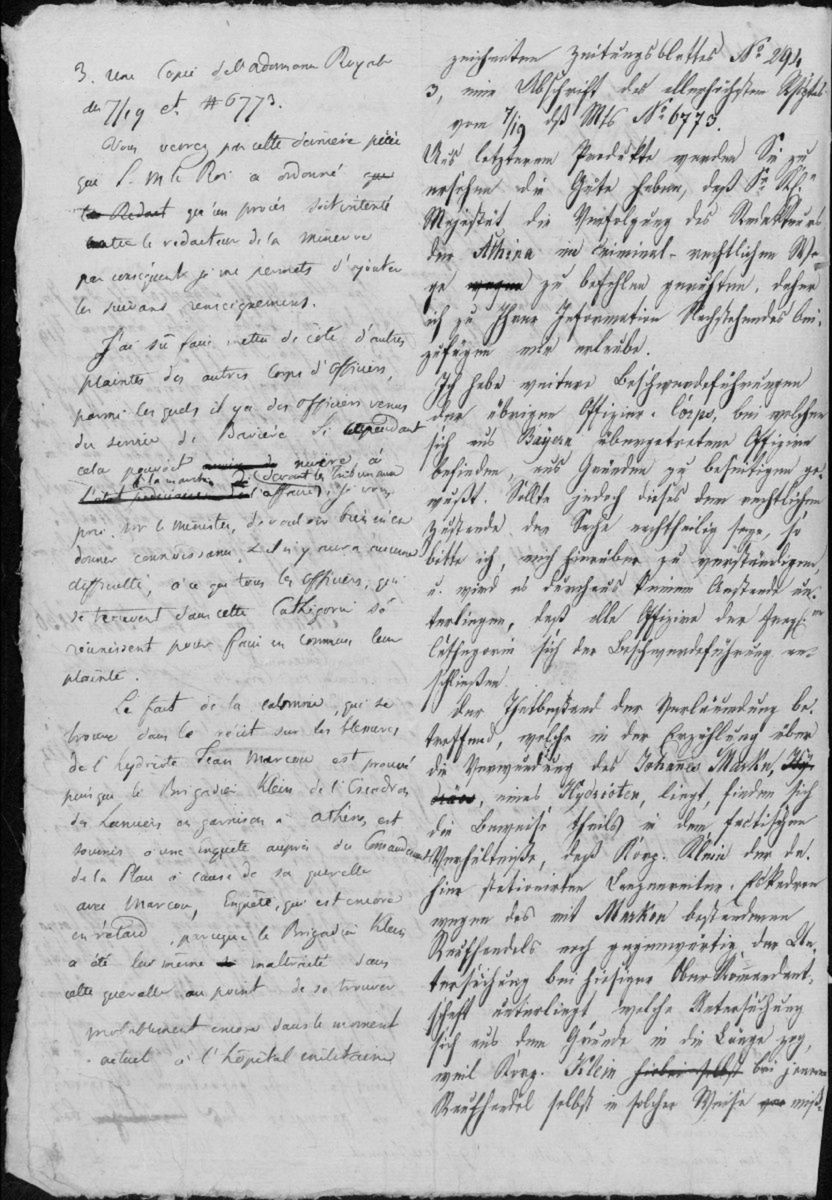 3. une Copie de l'adermana Royale
du 7/19 ct. # 6773.
Vous verrez par cette derniere pièce
que S. M. le Roi a ordonné que
le Redact qu'un procès soit intenté
contre le redacteur de la minerve
par conséquent je me permets d'ajouter
les suivans renseignemens.
J'ai sû faire mettre de côté d'autres
plaintes des autres Corps d'Officiers,
parmi les quels il y a des officiers venus
du service de Bavière. Si cependant
cela pouvoit nuire à
à la marche de devant les Tribunaux
l'état l'affaire, je vous
prie, Mr le Ministre, de vouloir bien m'en
donner connaissance, & il n'y aura aucune
difficulté, à ce que tous les officiers, qui
se trouvent dans cette Cathégorie se
réunissent pour faire en commun leur
plainte.
Le fait de la calomnie, qui se
trouve dans le récit sur les blessures
de l'hydriote Jean Marcou est prouvé
puisque le Brigadier Klein de l'Escadron
des Lanciers en garnison à Athènes est
soumis à une enquete auprès du Commandant
de la Place à cause de sa querelle
avec Marcou, Enquête, qui est encore
en retard, parceque le Brigadier Klein
a été lui même maltraité dans
cette querelle au point de se trouver
probablement encore dans le moment
actuel à l'hôpital militaire
zeichneten Zeitungsblattes No 294
3, eine Abschrift des allerhöchsten
vom 7/19 dß Mts No 6773.
Aus letzterem Produkte werden Sie zu
ersehen die Güte haben, daß Se Kgl.
Majestät die Verfolgung des Redakteurs
der Athina im criminal-rechtlichen We-
ge wegen zu befehlen geruhten, daher
ich zu Ihrer Information Nachstehendes bei-
zufügen mir erlaube.
Ich habe weitere Beschwerdeführungen
der übrigen Offizier-Corps, bei welchen
sich aus Bayern übergetretene Offiziere
befinden, aus Gründen zu beseitigen ge-
wußt. Sollte jedoch dieses dem rechtlichen
Zustande der Sache nachtheilig seyn, so
bitte ich, mich hierüber zu verständigen,
u. wird es durchaus keinem Anstande un-
terliegen, daß alle Offiziere der
Cathegorie sich der Beschwerdeführung an-
schließen.
Den Thatbestand der Verläumdung be-
treffend, welche in der Erzählung über
die Verwundung des Johannes Marku, Hy-
drioten, eines Hydrioten, liegt, finden sich
die Beweise theils in dem factischen
Verhältniße, daß Korp. Klein der da-
hier stationirten Lanzenreiter-Eskadron
wegen des mit Markou bestandenen
Raufhandels noch gegenwärtig der Un-
tersuchung bei hiesiger Ober Kommandant-
schaft unterliegt welche Untersuchung
sich aus dem Grunde in die Länge zog,
weil Korp. Klein hiebei selbst bei jenem
Raufhandel selbst in solcher Weise miß-